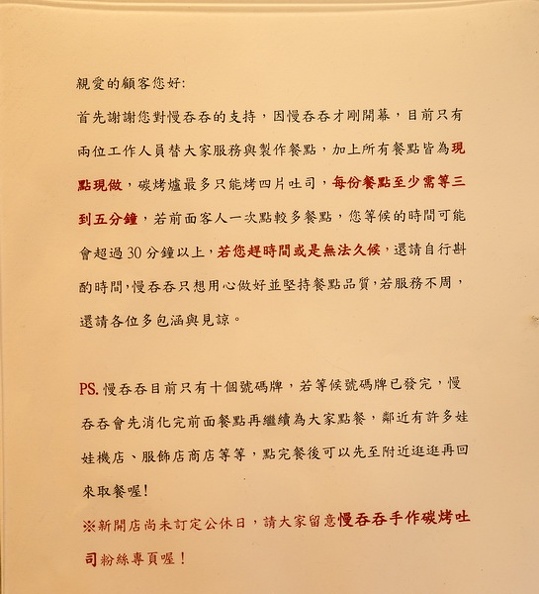 親愛的顧客您好:
首先謝謝您對慢吞吞的支持，因慢吞吞才剛開幕，目前只有
兩位工作人員替大家服務與製作餐點，加上所有餐點皆為現
點現做，碳烤爐最多只能烤四片吐司，每份餐點至少需等三
到五分鐘，若前面客人一次點較多餐點，您等候的時間可能
會超過 30 分鐘以上，若您趕時間或是無法久候，還請自行斟
酌時間，慢吞吞只想用心做好並堅持餐點品質，若服務不周，
還請各位多包涵與見諒。
PS. 慢吞吞目前只有十個號碼牌，若等候號碼牌已發完，慢
吞吞會先消化完前面餐點再繼續為大家點餐，鄰近有許多娃
娃機店、服飾店商店等等，點完餐後可以先至附近逛逛再回
來取餐喔!
※新開店尚未訂定公休日，請大家留意慢吞吞手作碳烤吐
司粉絲專頁喔！